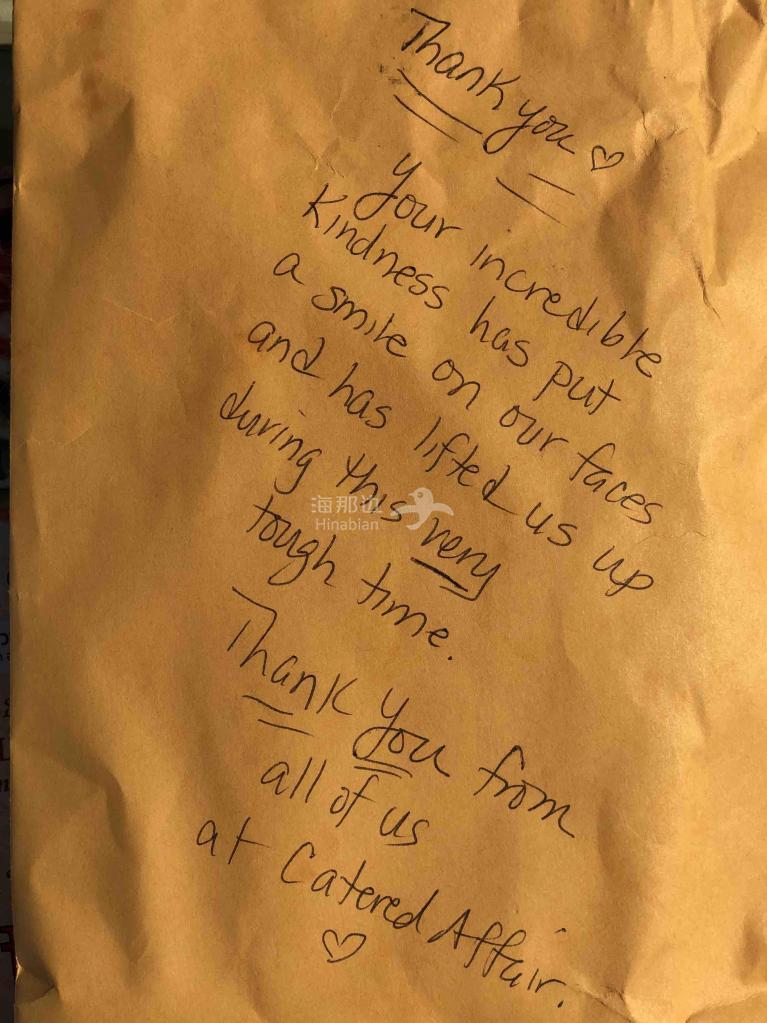 Thank you ♡
Your incredible
Kindness has put
a smile on our faces
and has lifted us up
during this very
tough time.
Thank You from
all of us
at Catered Affair.
♡
海那边
Hinabian